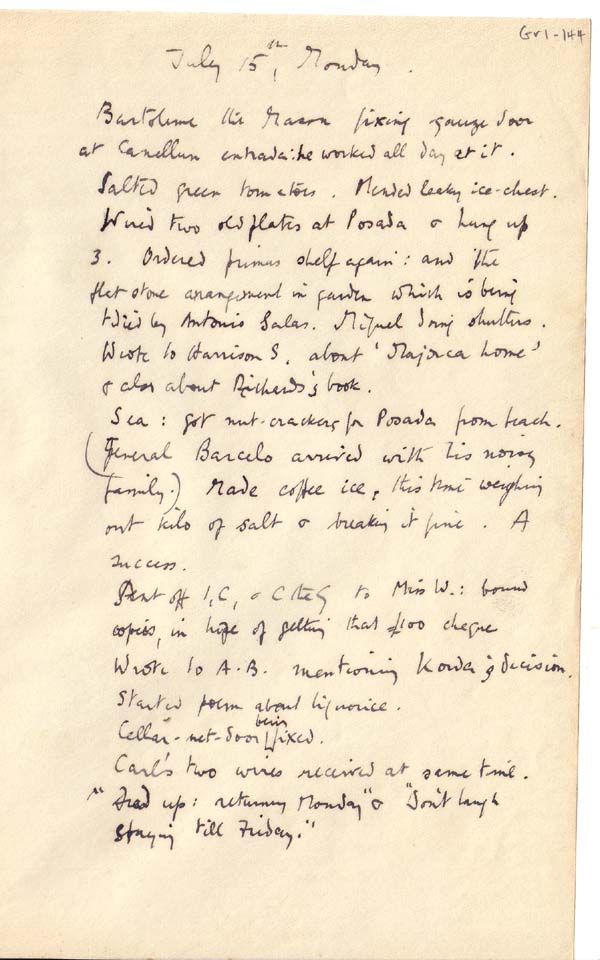 Gr1-144
July 15th, Monday.
Bartolome the Mason fixing gauze door
at Canellun entrada: he worked all day at it.
Salted green tomatoes. Mended leaky ice-chest.
Wired two old plates at Posada & hung up
3. Ordered primus shelf again: and the
flat stone arrangement in garden which is being
tidied by Antonio Salas. Miguel doing shutters.
Wrote to Harrison S. about 'Majorca home'
& also about Richards's book.
Sea: got nut-crackers for Posada from beach.
(General Barcelo arrived with his noisy
family.) Made coffee ice, this time weighing
out kilo of salt & breaking it fine. A
success.
Sent off I, C, & C the G to Miss W.: bound
copies, in hope of getting that £100 cheque
Wrote to A.B. mentioning Korda's decision.
Started poem about liquorice.
Cellar-net-door being fixed.
Carl's two wires received at same time.
" Fixed up: returning Monday" & "Don't laugh
staying till Friday."